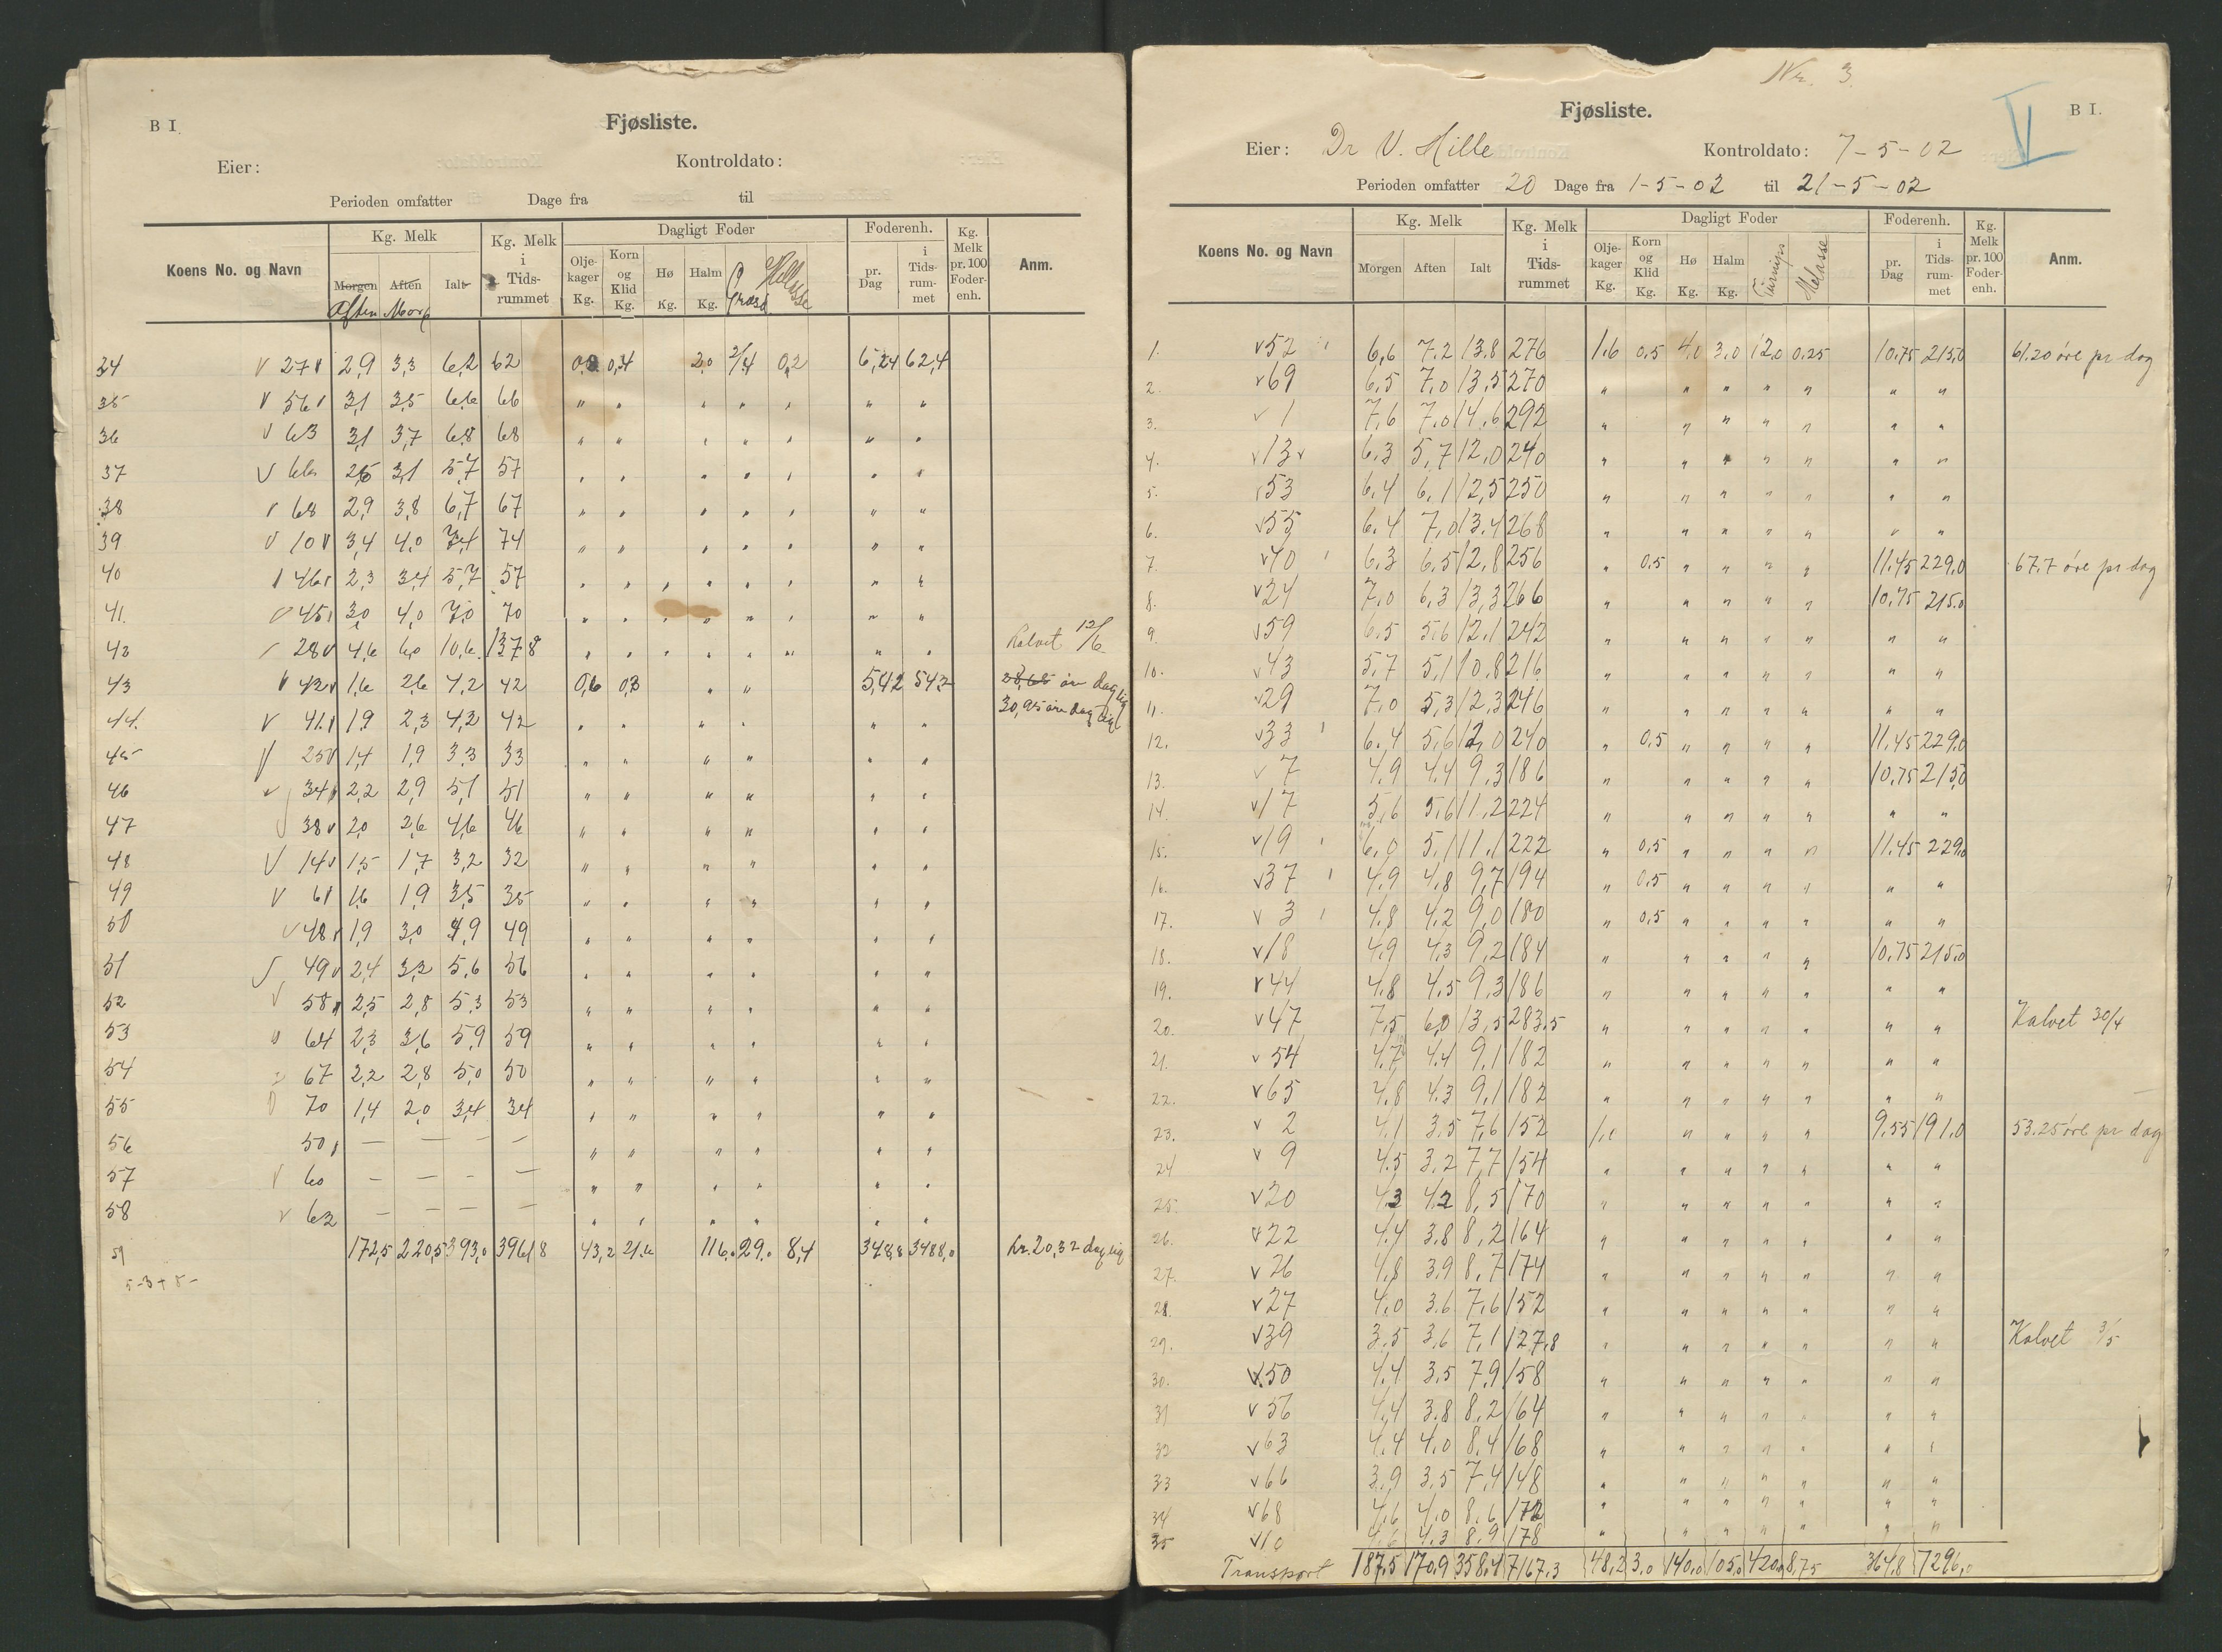 B I.
Fjøsliste.
Eier: Kontroldato:
Perioden omfatter Dage fra til
Koens No. og Navn Kg. Melk Morgen Aften Ialt Kg. Melk i Tids-rummet Dagligt Foder Olje-kager Kg. Korn og Klid Kg. Hø Kg. Halm Kg. Græs Mellasse Foderenh. pr. Dag i Tids-rum-met Kg. Melk pr. 100 Foder-enh. Anm.
Aften Morg
34 v 27 2,9 3,3 6,2 62 0,4 2,0 2/4 0,2 6,24 62,4
35 v 56 3,1 3,5 6,6 66 " " " " " " "
36 v 63 3,1 3,7 6,8 68 " " " " " " "
37 v 66 2,6 3,1 5,7 57 " " " " " " "
38 v 68 2,9 3,8 6,7 67 " " " " " " "
39 v 10 3,4 4,0 7,4 74 " " " " " " "
40 v 46 2,3 3,4 5,7 57 " " " " " " " "
41. v 45 3,0 4,0 7,0 70 " " " " " " " "
42 v 28 4,6 6,0 10,6 137,8 " " " " " " " " Kalvet 12/6
43 v 42 1,6 2,6 4,2 42 0,6 0,3 " " 5,42 54,2 28,65 øre daglig
30,95 øre daglig
44. v 41 1,9 2,3 4,2 42 " " " " " "
45 v 25 1,4 1,9 3,3 33 " " " " " "
46 v 34 2,2 2,9 5,1 51 " " " " " "
47 v 38 2,0 2,6 4,6 46 " " " " " "
48 v 14 1,5 1,7 3,2 32 " " " " " "
49 v 61 1,6 1,9 3,5 35 " " " " " "
50 v 48 1,9 3,0 4,9 49 " " " " " "
51 v 49 2,4 3,2 5,6 56 " " " " " "
52 v 58 2,5 2,8 5,3 53 " " " " " "
53 v 64 2,3 3,6 5,9 59 " " " " " "
54 v 67 2,2 2,8 5,0 50 " " " " " "
55 v 70 1,4 2,0 3,4 34 " " " " " "
56 50 — — — — " " " " " "
57 v 60 — — — — " " " " " "
58 v 62 — — — — " " " " " "
59 172,5 220,5 393,0 3961,8 43,2 21,6 116,0 29,0 8,4 348,8 3488,0 kr. 20,32 daglig
Nr. 3
V
B I.
Fjøsliste.
Eier: Dr V. Hille Kontroldato: 7-5-02
Perioden omfatter 20 Dage fra 1-5-02 til 21-5-02
Koens No. og Navn Kg. Melk Morgen Aften Ialt Kg. Melk i Tids-rummet Dagligt Foder Olje-kager Kg. Korn og Klid Kg. Hø Kg. Halm Kg. Turnips Melasse Foderenh. pr. Dag i Tids-rum-met Kg. Melk pr. 100 Foder-enh. Anm.
1. v 52 6,6 7,2 13,8 276 1,6 0,5 4,0 3,0 12,0 0,25 10,75 215,0 61.20 øre pr dag
2. v 69 6,5 7,0 13,5 270 " " " " " " "
3. v 1 7,6 7,0 14,6 292 " " " " " " "
4. v 13 6,3 5,7 12,0 240 " " " " " " "
5. v 53 6,4 6,1 12,5 250 " " " " " " "
6. v 55 6,4 7,0 13,4 268 " " " " " " "
7. v 40 6,3 6,5 12,8 256 " 0.5 " " " " 11,45 229,0 67.7 øre pr dag
8. v 24 7,0 6,3 13,3 266 " " " " " 10,75 215,0
9. v 59 6,5 5,6 12,1 242 " " " " " " "
10. v 43 5,7 5,1 10,8 216 " " " " " " "
11. v 29 7,0 5,3 12,3 246 " " " " " " "
12. v 33 6,4 5,6 12,0 240 " 0,5 " " " " 11,45 229,0
13. v 7 4,9 4,4 9,3 186 " " " " " 10,75 215,0
14. v 17 5,6 5,6 11,2 224 " " " " " " "
15. v 19 6,0 5,1 11,1 222 " 0,5 " " " " 11.45 229,0
16. v 37 4,9 4,8 9,7 194 " 0,5 " " " " " "
17. v 3 4,8 4,2 9,0 180 " 0,5 " " " " " "
18. v 18 4,9 4,3 9,2 184 " " " " " 10,75 215,0
19. v 44 4,8 4,5 9,3 186 " " " " " " "
20. v 47 7,5 6,0 13,5 283,5 " " " " " " " Kalvet 30/4
21. v 54 4,7 4,4 9,1 182 " " " " " " "
22. v 65 4,8 4,3 9,1 182 " " " " " " "
23. v 2 4,1 3,5 7,6 152 " " " " 9,55 191,0 53.25 øre pr dag
24 v 9 4,5 3,2 7,7 154 " " " " " " "
25. v 20 4,3 4,2 8,5 170 " " " " " " "
26. v 22 4,4 3,8 8,2 164 " " " " " " "
27. v 26 4,8 3,9 8,7 174 " " " " " " "
28. v 27 4,0 3,6 7,6 152 " " " " " " "
29. v 39 3,5 3,6 7,1 127,8 " " " " " " " Kalvet 3/5
30. v 50 4,4 3,5 7,9 158 " " " " " " "
31 v 56 4,4 3,8 8,2 164 " " " " " " "
32 v 63 4,4 4,0 8,4 168 " " " " " " "
33 v 66 3,9 3,5 7,4 148 " " " " " " "
34 v 68 4,6 4,0 8,6 172 " " " " " " "
35 v 10 4,6 4,3 8,9 178 " " " " " " "
Transport 187,5 170,9 358,4 7167,3 48,2 3,0 140,0 105,0 420,0 8,75 364,8 7296,0